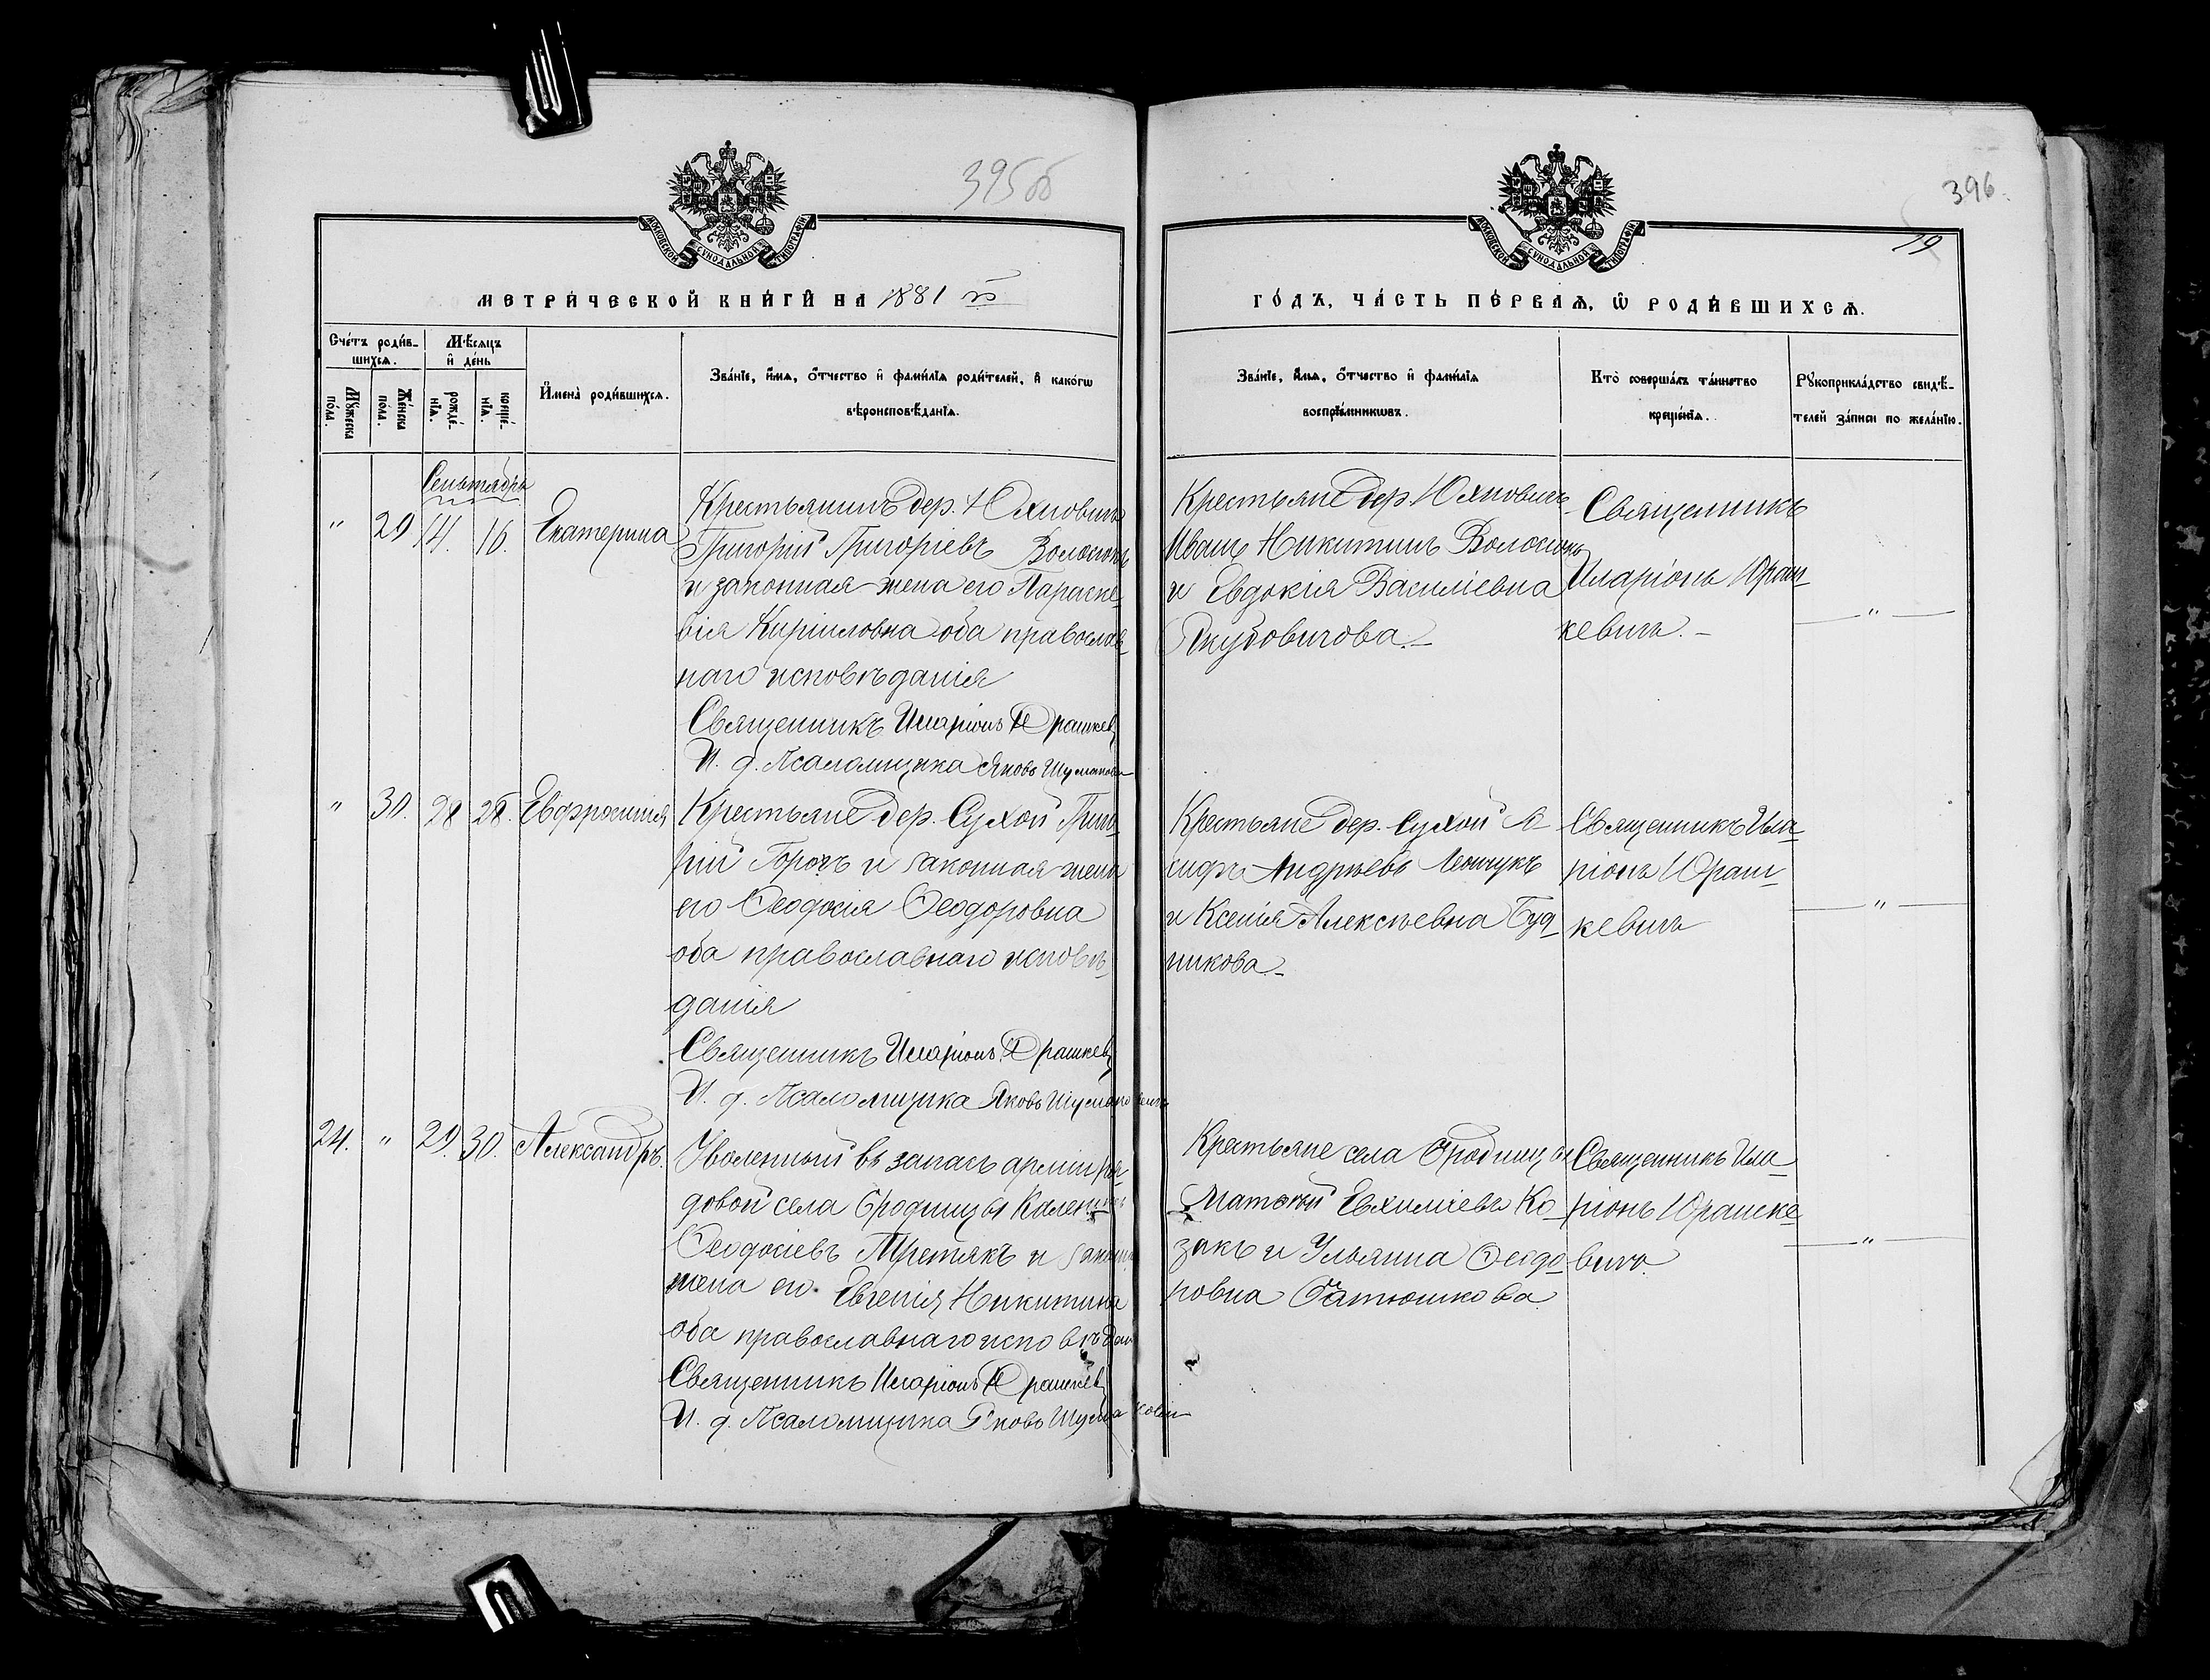 395об
396.
19
МОСКОВСКОЙ СѴНОДАЛЬНОЙ ТИПОГРАФІИ
МОСКОВСКОЙ СѴНОДАЛЬНОЙ ТИПОГРАФІИ
МЕТРИ́ЧЕСКОЙ КНИ́ГИ НА 1881 й
ГО́ДЪ, ЧА́СТЬ ПЕ́РВАѦ, Ѡ РОДИ́ВШИХСѦ.
Сче́тъ роди́в-
шихсѧ.
Мѣ́сѧцъ
и де́нь
Мꙋ́жеска
по́ла.
Же́нска
по́ла.
рожде́-
нїѧ.
креще́-
нїѧ.
Имена̀ роди́вшихсѧ.
Зва́нїе, и́мѧ, о́тчество и фами́лїѧ роди́телей, и како́гѡ
вѣроисповѣ́данїѧ.
Зва́нїе, и́мѧ, о́тчество и фами́лїѧ
воспрїе́мникѡвъ.
Кто̀ соверша́лъ та́инство
креще́нїѧ.
Рꙋкоприкла́дство свидѣ́-
телей за́писи по жела́нїю.
Сентябрь
" 29 14. 16. Екатерина
Крестьянинъ дер. Юхновичъ
Григорій Григоріевъ Волосюкъ
и законная жена его Параске-
вія Кирилловна оба православ-
наго исповѣданія
Священникъ Иларіонъ Юрашкев
И. д. Псаломщика Яковъ Шуманови
Крестьяне дер. Юхновичъ
Иванъ Никитинъ Волосюкъ
и Евдокія Василіевна
Якубовичова.-
Священникъ
Иларіонъ Юраш-
кевичъ.-
"
" 30. 28 28. Евфросинія
Крестьяне дер. Сухой Григо-
рій Горохъ и законная жена
его Ѳеодосія Ѳеодоровна
оба православнаго исповѣ-
данія
Священникъ Иларіонъ Юрашкев
И. д. Псаломщика Яковъ Шуманович
Крестьяне дер. Сухой
Андрѣевъ Леончукъ
и Ксенія Алексѣевна Буд-
никова.-
Священникъ Ила-
ріонъ Юраш-
кевичъ
"
24. " 29. 30. Александръ.
Уволенный въ запасъ арміи ря-
довой села Бродницы
Ѳеодосіевъ Третякъ и законн
жена его Евгенія Никитина
оба православнаго исповѣдан
Священникъ Иларіонъ Юрашкев
И. д. Псаломщика Яковъ Шуманович
Крестьяне села Бродницы
Матвѣй Евхиміевъ Ко-
закъ и Ульянна Ѳеодо-
ровна Батюшкова
Священникъ Ила-
ріонъ Юрашке-
вичъ.
"